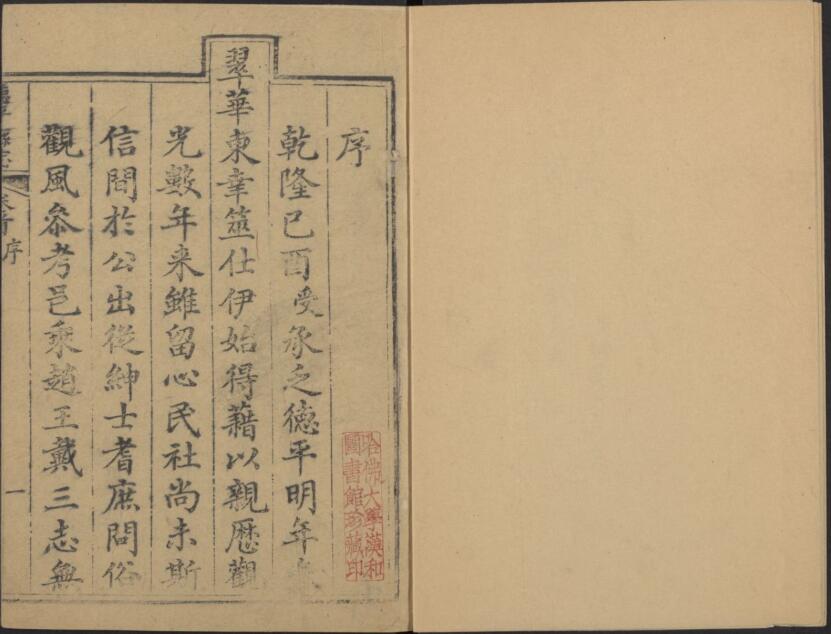 哈佛大學漢和
圖書館珍藏印
序
乾隆己酉受承乏德平明年
翠華東幸筮仕伊始得藉以親歷觀
光數年来雖留心民社尚未斯
信間於公出從紳士耆庶問俗
觀風叅考邑乘趙王戴三志無
序
一